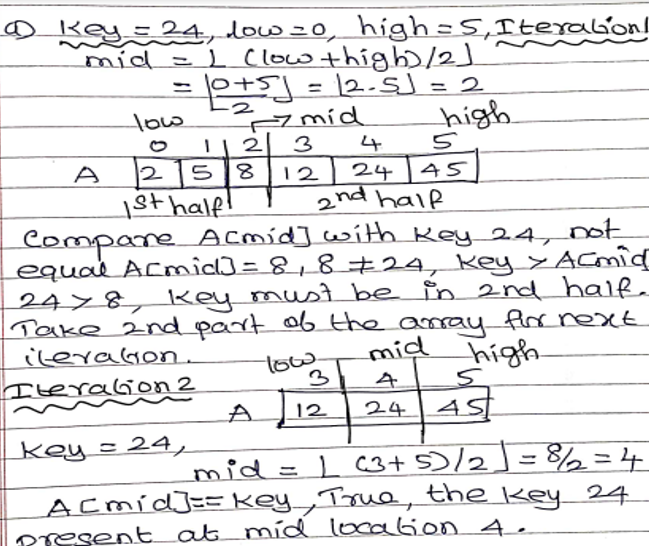 ① Key = 24, low = 0, high = 5, Iteration 1
mid = ⌊ (low + high)/2⌋
= ⌊0+5/2⌋ = ⌊2.5⌋ = 2
low → mid high
0 1 2 3 4 5
A 2 5 8 12 24 45
1st half 2nd half
Compare A[mid] with key 24, not
equal A[mid] = 8, 8 ≠ 24, key > A[mid
24 > 8, key must be in 2nd half.
Take 2nd part of the array for next
iteration.
low mid high
Iteration 2 3 4 5
A 12 24 45
key = 24,
mid = ⌊ (3+5)/2 ⌋ = 8/2 = 4
A[mid] == key, True, the key 24
present at mid location 4.